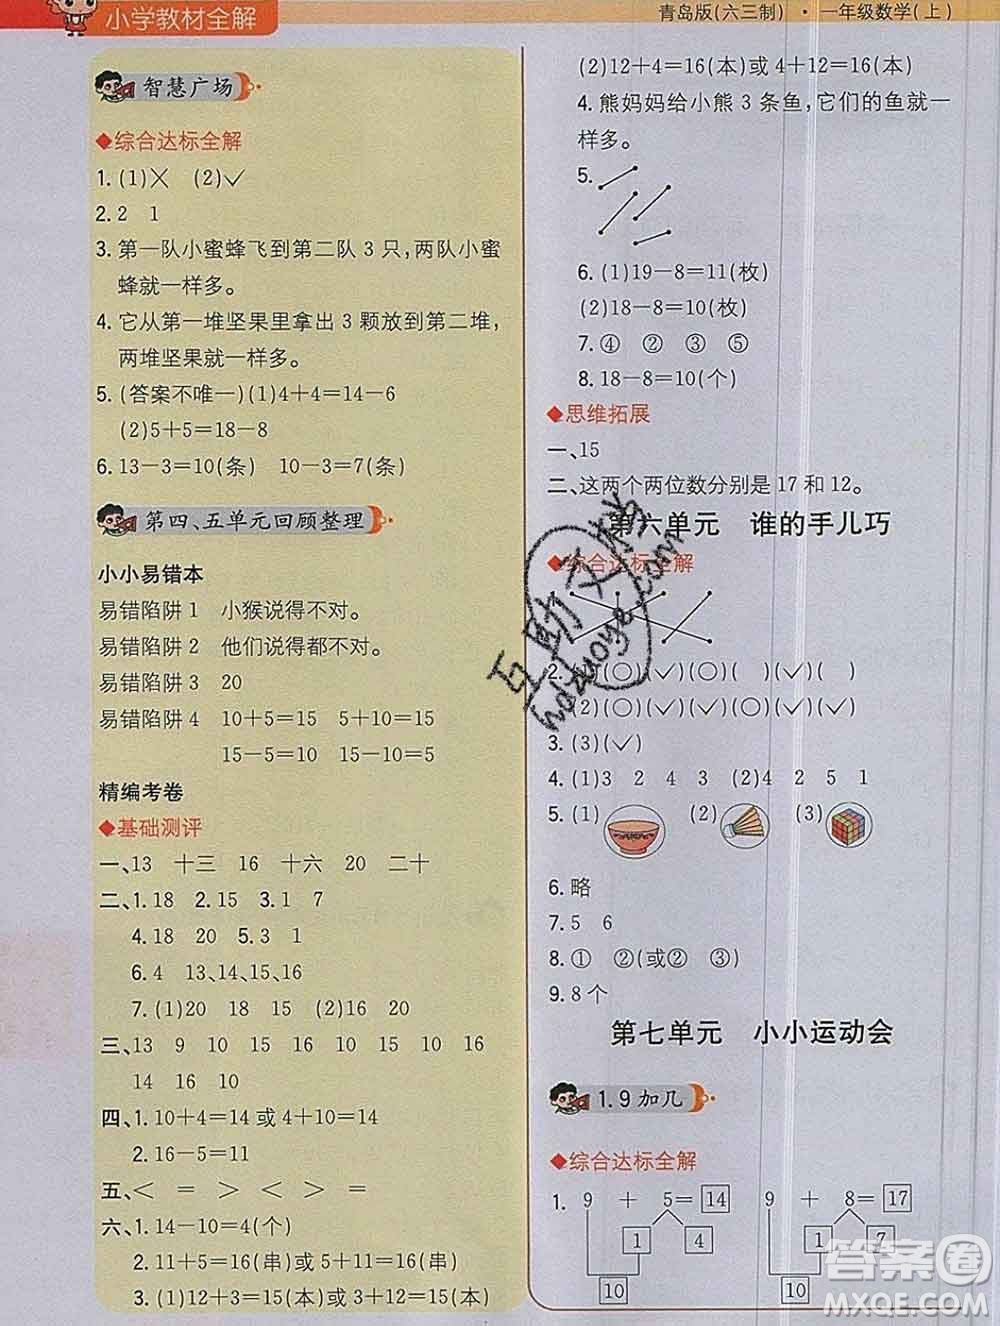 小学教材全解
青岛版(六三制) · 一年级数学(上)
智慧广场
◆综合达标全解
1. (1)╳ (2)✓
2. 2 1
3. 第一队小蜜蜂飞到第二队 3 只,两队小蜜
蜂就一样多。
4. 它从第一堆坚果里拿出 3 颗放到第二堆,
两堆坚果就一样多。
5. (答案不唯一)(1)4+4=14-6
(2)5+5=18-8
6. 13-3=10(条) 10-3=7(条)
第四、五单元回顾整理
小小易错本
易错陷阱 1 小猴说得不对。
易错陷阱 2 他们说得都不对。
易错陷阱 3 20
易错陷阱 4 10+5=15 5+10=15
15-5=10 15-10=5
精编考卷
◆基础测评
一、13 十三 16 十六 20 二十
二、1. 18 2. 15 3. 1 7
4. 18 20 5. 3 1
6. 4 13、14、15、16
7. (1)20 18 15 (2)16 17
三、13 9 10 15 16 10 10 16
14 16 10
四、1. 10+4=14 或 4+10=14
2. 16-5=11
五、< = > < < =
六、1. 14-10=4(个)
2. 11+5=16(串)或 5+11=16(串)
3. (1)12+3=15(本)或 3+12=15(本)
(2)12+4=16(本)或 4+12=16(本)
4. 熊妈妈给小熊 3 条鱼,它们的鱼就一
样多。
5.
6. (1)19-8=11(枚)
(2)18-8=10(枚)
7. ④ ② ③ ⑤
8. 18-8=10(个)
◆思维拓展
一、15
二、这两个两位数分别是 17 和 12。
第六单元 谁的手儿巧
◆综合达标全解
2. (✓)(○)(✓)(○)( )(✓)( )
(2)(○)(✓)(✓)(○)(✓)(✓)
3. (3)(✓)
4. (1)3 2 4 3 (2)4 2 5 1
5. (1) (2) (3)
6. 略
7. 5 6
8. ① ②(或② ③)
9. 8 个
第七单元 小小运动会
1. 9 加几
◆综合达标全解
1. 9 + 5=14 9 + 8=17
1 4 1 7
10 10
互助文档
hdzuoye.com
答案圈
MXQE.COM